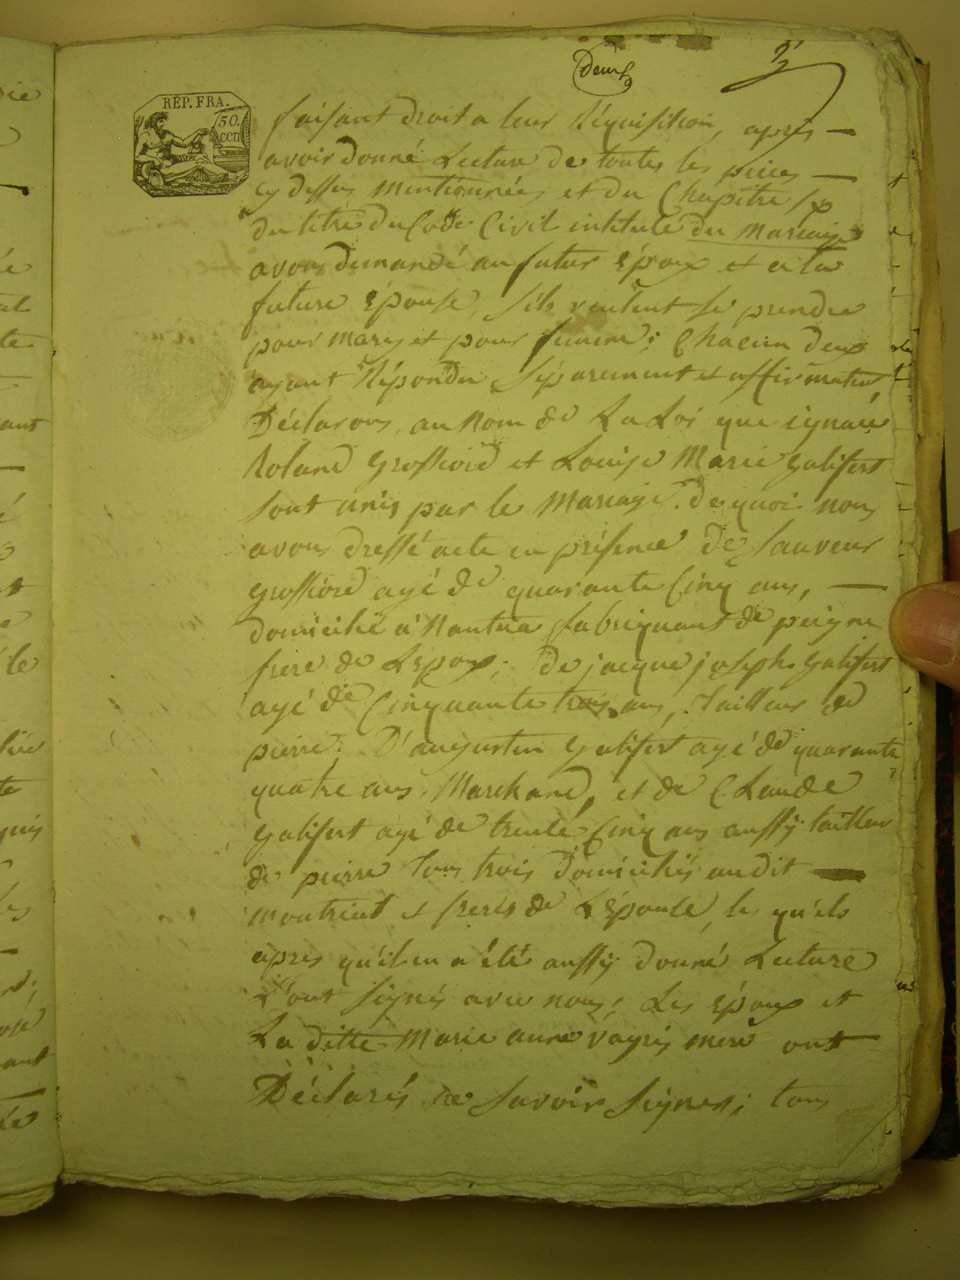 Deux
2
REP. FRA.
50.
cen
faisant droit a leur Réquisition, après —
avoir donné Lecture de toutes les pièces —
cy dessus mentionnées et du Chapitre six
du titre du Code Civil intitulé du Mariage
avons demandé au futur Epoux et a la
future Epouse, s'ils veulent se prendre
pour Mary et pour femme; Chacun deux
ayant Répondu séparement et affirmativt
Déclarons au Nom de La Loi que ignace
Roland Grossiord et Louise Marie Galifert
sont unis par le Mariage. de quoi nous
avons dressé acte en présence de Sauveur
Grossiord agé de quarante Cinq ans, —
domicilié a Nantua fabriquant de peigne
frere de L'epoux; de jacque joseph Galifert
agé de Cinquante trois ans, tailleur de
pierre; D'augustin Galifert agé de quarante
quatre ans Marchand, et de Claude
Galifert agé de trente Cinq ans aussy tailleur
de pierre tous trois domiciliés audit —
et freres de L'Epouse, les qu'els
après qu'il en a été aussy donné Lecture
L'ont signés avec nous; Les Epoux et
La ditte Marie anne mere ont —
Déclarés ne savoir signer; tous